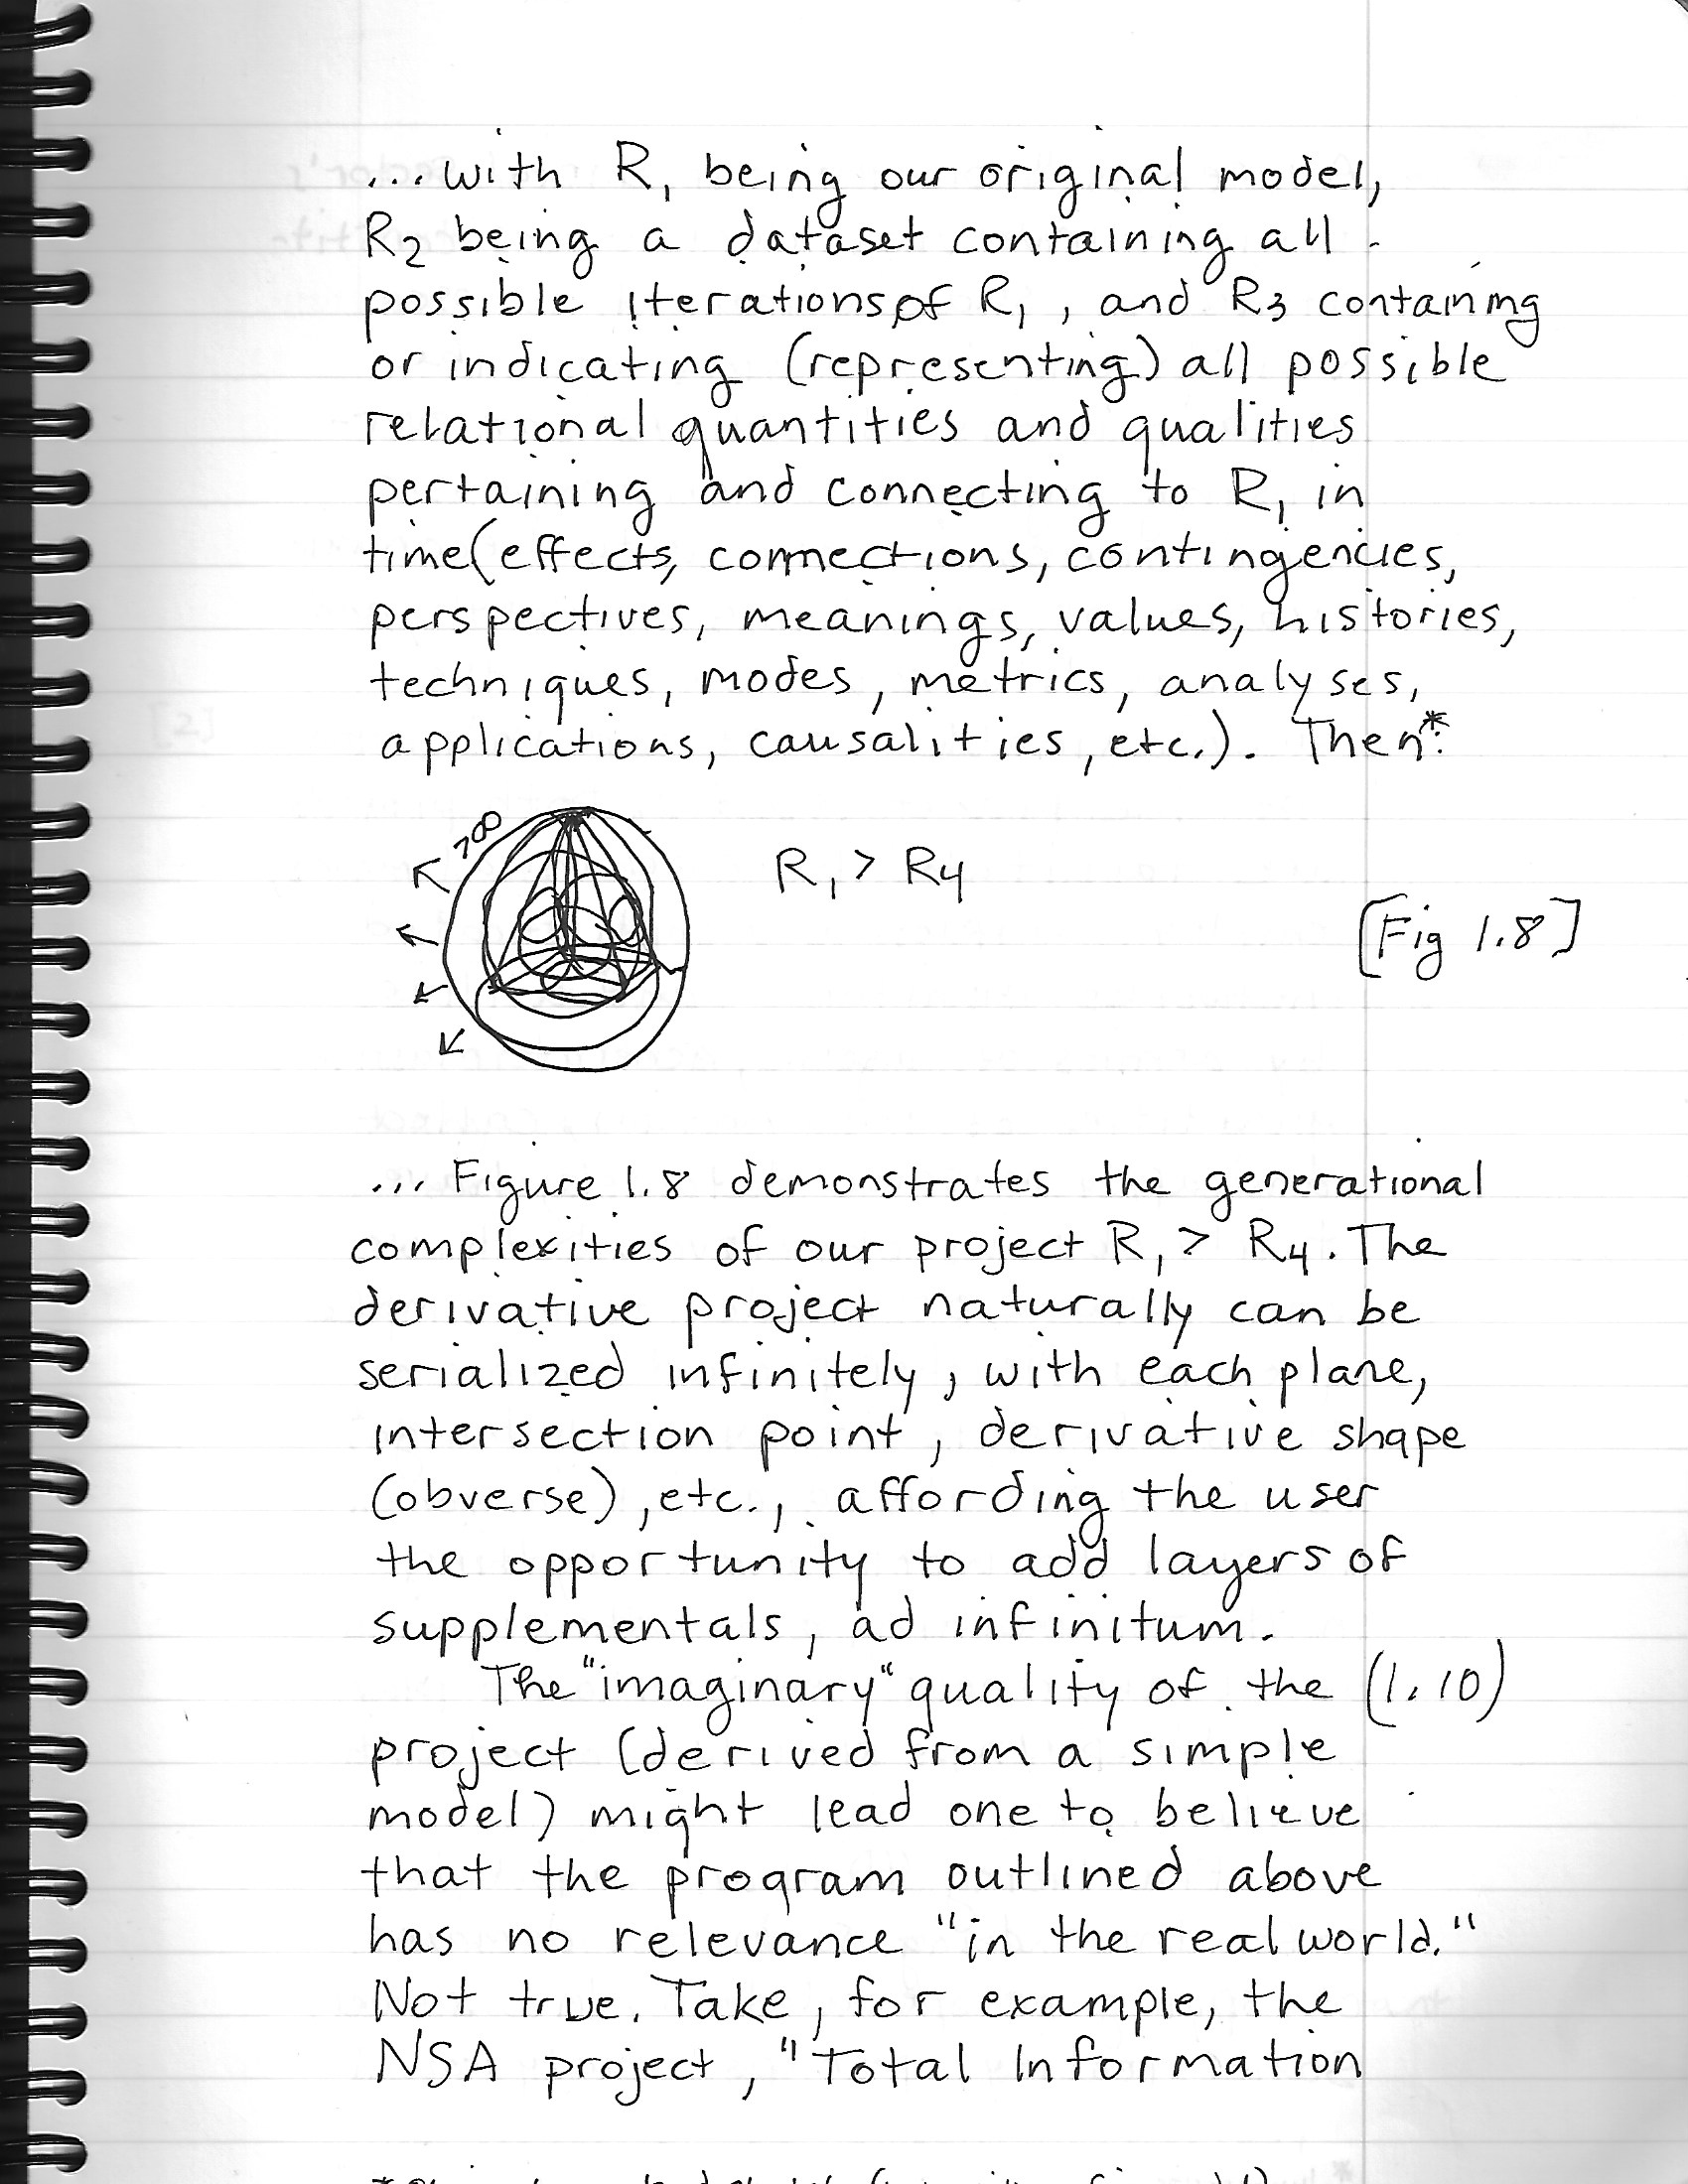 ...with R1 being our original model,
R2 being a dataset containing all
possible iterations of R1, and R3 containing
or indicating (representing) all possible
relational quantities and qualities
pertaining and connecting to R1 in
time (effects, connections, contingencies,
perspectives, meanings, values, histories,
techniques, modes, metrics, analyses,
applications, causalities, etc.). Then*:
R1 > R4
[Fig 1.8]
... Figure 1.8 demonstrates the generational
complexities of our project R1 > R4. The
derivative project naturally can be
serialized infinitely, with each plane,
intersection point, derivative shape
(obverse), etc., affording the user
the opportunity to add layers of
supplementals, ad infinitum.
The "imaginary" quality of the (1.10)
project (derived from a simple
model) might lead one to believe
that the program outlined above
has no relevance "in the real world."
Not true. Take, for example, the
NSA project, "Total Information